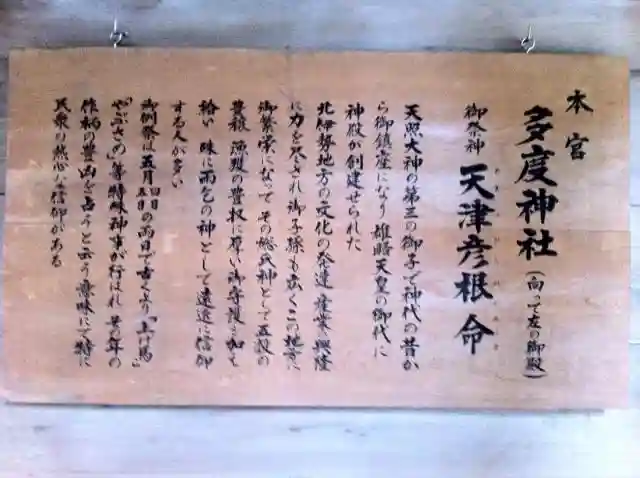 本宮
多度神社(向って左の御殿)
御祭神 天津彦根命
あまつひこねのみこと
天照大神の第三の御子で神代の昔か
ら御鎮座になり雄略天皇の御代に
神殿が創建せられた
北伊勢地方の文化の発達産業の興隆
に力を尽され御子孫も広くこの地方に
御繁栄になってその総氏神として五穀の
豊穣 漁獲の豊収に厚い御守護を加も
給い 殊に雨乞の神として遠近に信仰
する人が多い
御例祭は五月四日五日の両日で古くより「上げ馬」
「やぶさめ」等特殊神事が行はれ 其の年の
作柄の豊凶を占うと云う意味にて特に
民衆の熱心な信仰がある